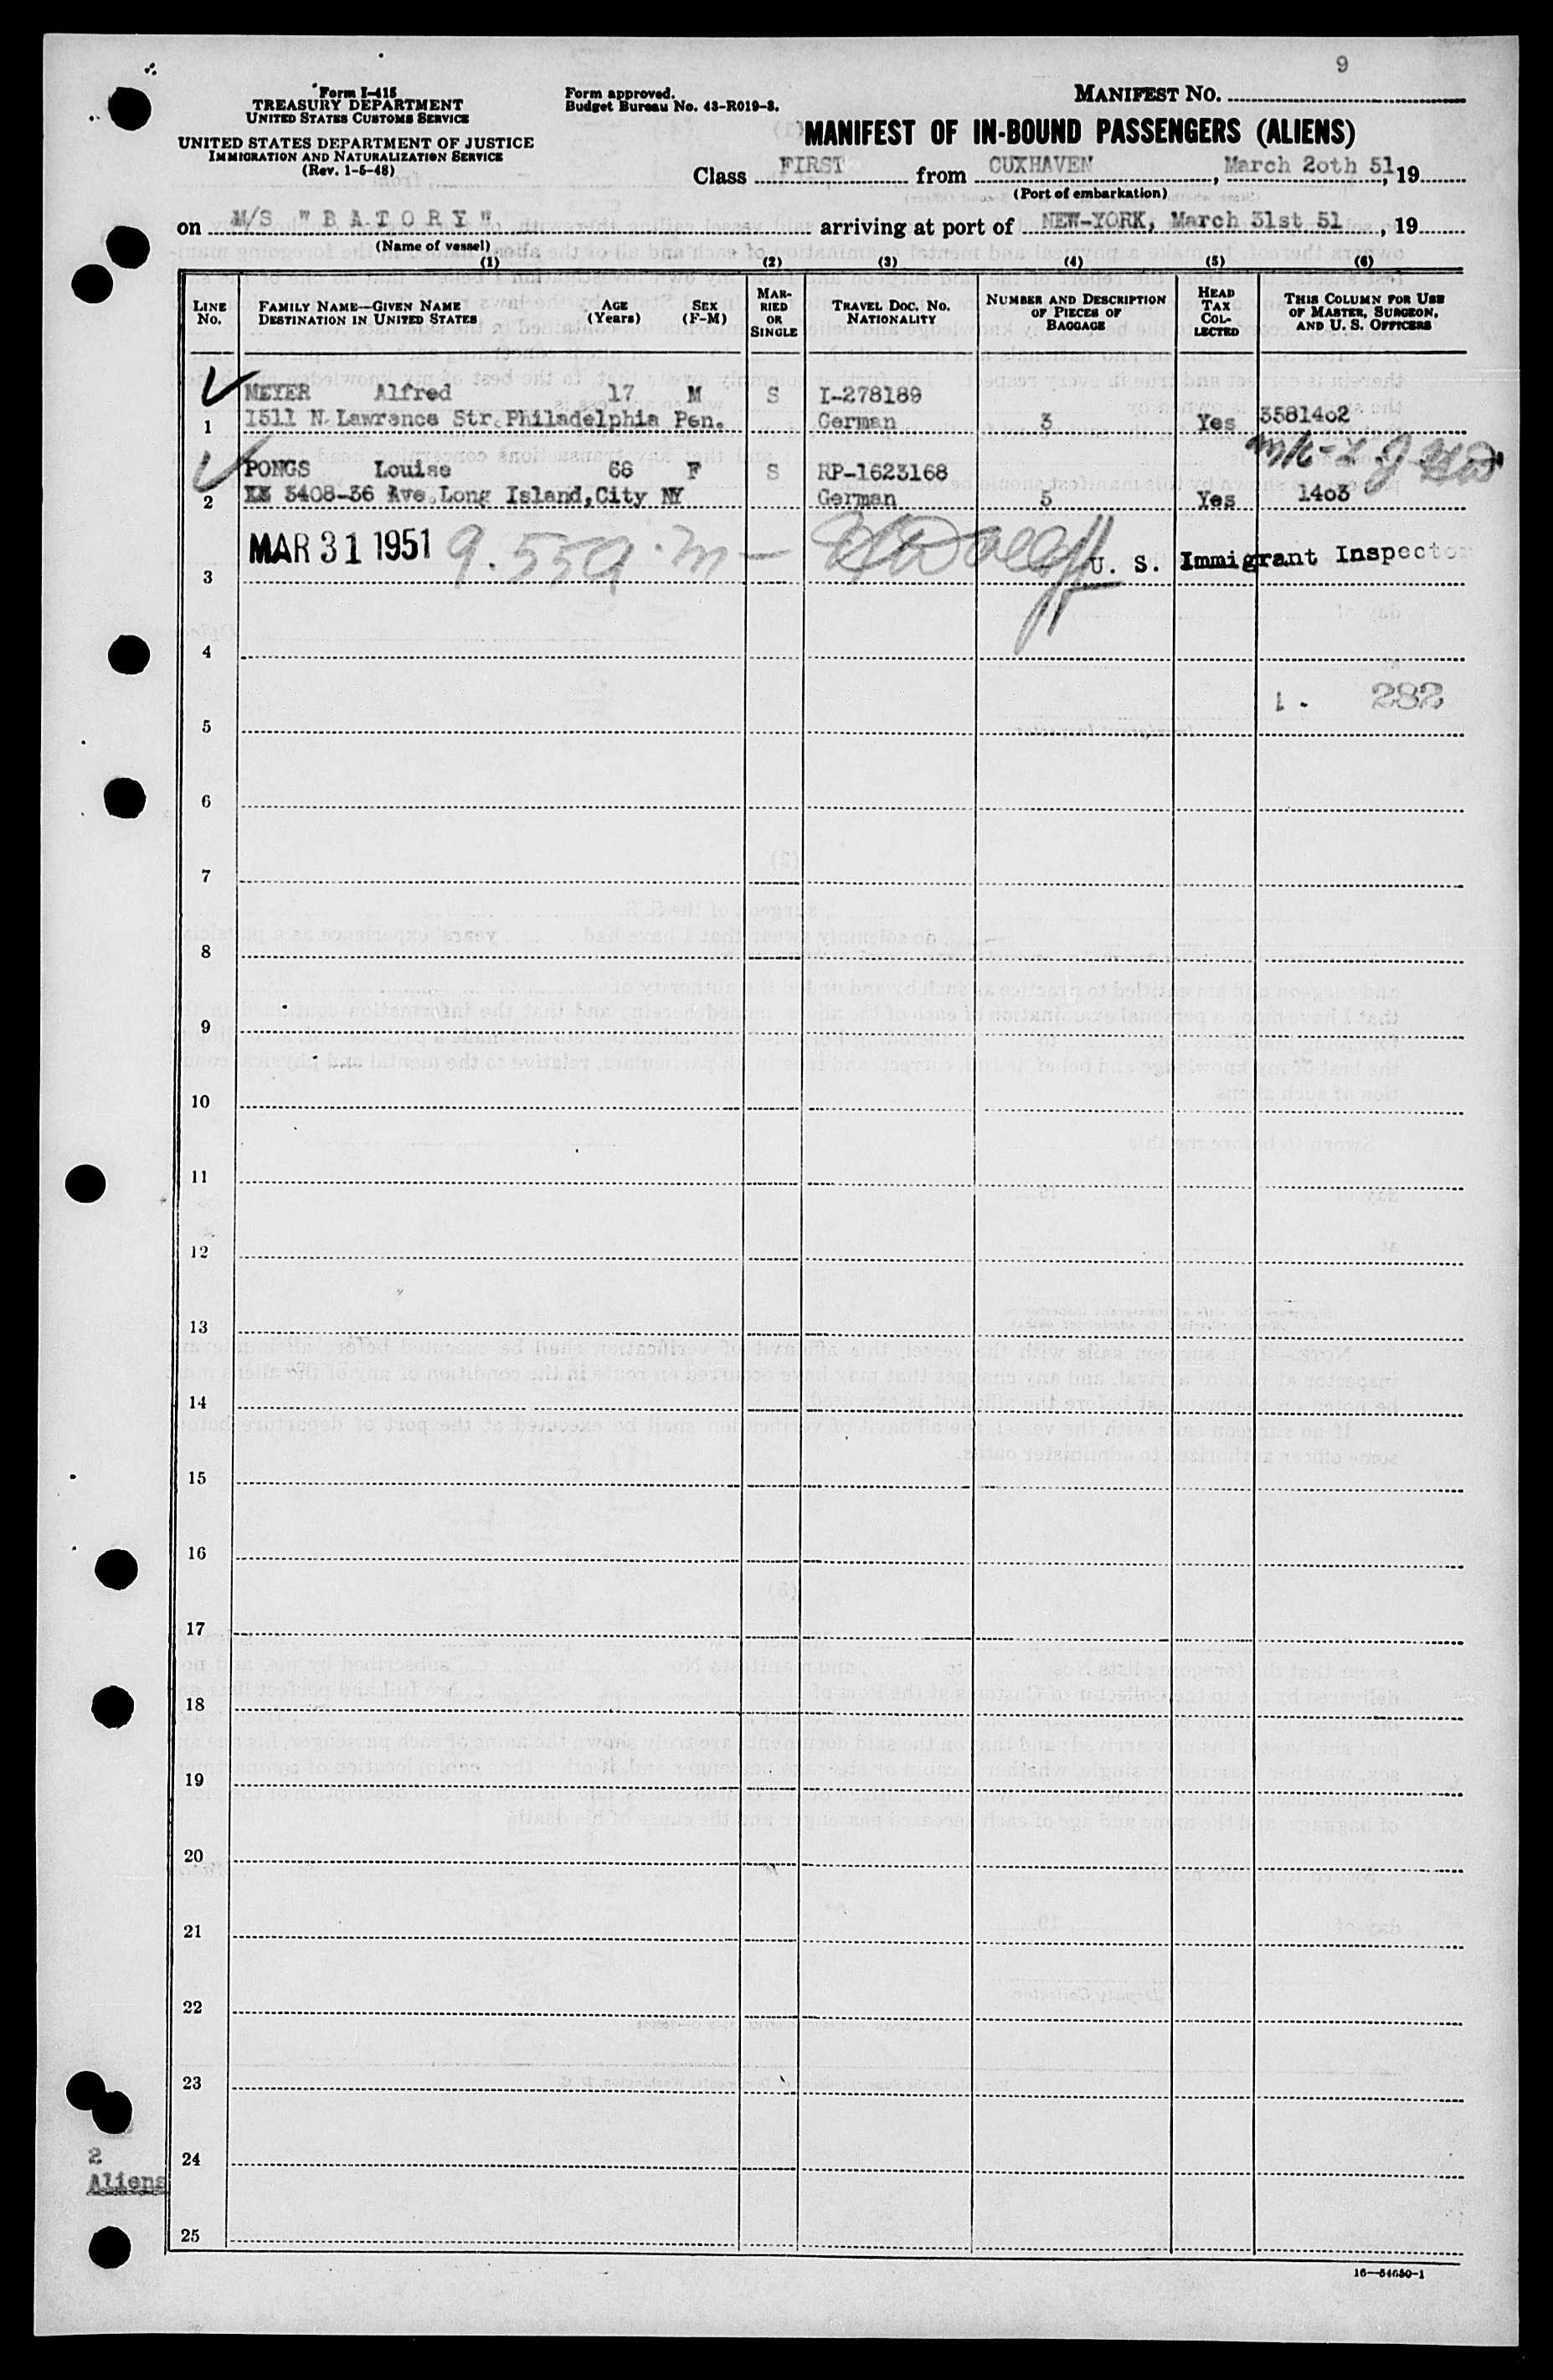 9
Form I-415
TREASURY DEPARTMENT
UNITED STATES CUSTOMS SERVICE
UNITED STATES DEPARTMENT OF JUSTICE
IMMIGRATION AND NATURALIZATION SERVICE
(Rev. 1-5-48)
Form approved.
Budget Bureau No. 43-R019-3.
MANIFEST NO.
MANIFEST OF IN-BOUND PASSENGERS (ALIENS)
Class FIRST from CUXHAVEN, March 2oth 51, 19
(Port of embarkation)
on M/S "B A T O R Y" arriving at port of NEW-YORK, March 31st 51, 19
(Name of vessel)
(1) (2) (3) (4) (5) (6)
LINE No.
FAMILY NAME—GIVEN NAME
DESTINATION IN UNITED STATES
AGE (Years)
SEX (F-M)
MARRIED OR SINGLE
TRAVEL DOC. NO.
NATIONALITY
NUMBER AND DESCRIPTION OF PIECES OF BAGGAGE
HEAD TAX COLLECTED
THIS COLUMN FOR USE OF MASTER, SURGEON, AND U. S. OFFICERS
MEYER Alfred 17 M S I-278189
1 1511 N. Lawrence Str. Philadelphia Pen. German 3 Yes 35814o2
PONGS Louise 66 F S RP-1623168
2 3408-36 Ave. Long Island, City NY German 5 Yes 14o3
MAR 31 1951 9.55 a.m — U. S. Immigrant Inspector
3
4
1. 282
5
6
7
8
9
10
11
12
13
14
15
16
17
18
19
20
21
22
23
2
Aliens
24
25
16—54680-1